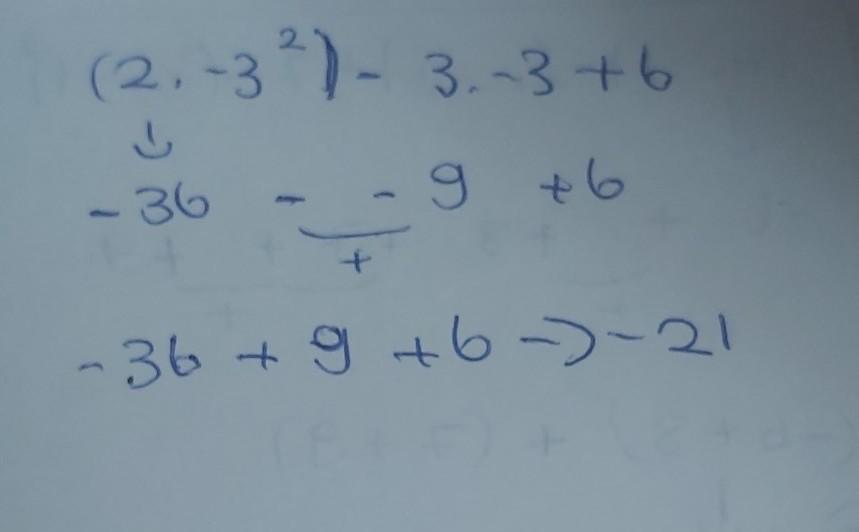 (2. -3²) - 3. -3 + 6
↓
-36 - - 9 + 6
+
-36 + 9 + 6 → -21